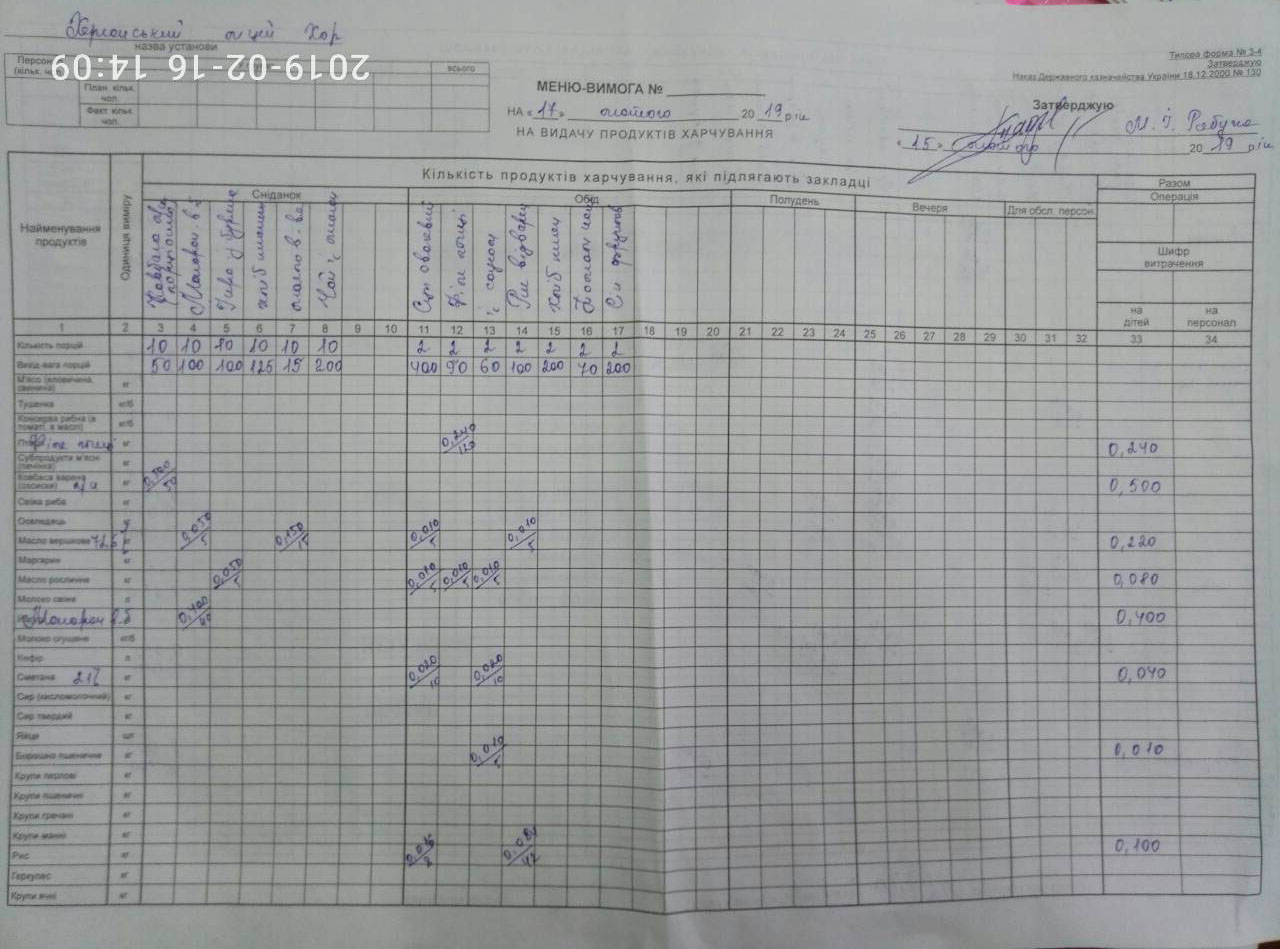 Херсонський ліцей Хор
назва установи
2019-02-16 14:09
Персон
(кільк. ч
всього
План. кільк.
чол.
Факт кільк.
чол.
Типова форма № 3-4
Затверджую
Наказ Державного казначейства України 18.12.2000 № 130
МЕНЮ-ВИМОГА №
НА «17» лютого 2019 рік
НА ВИДАЧУ ПРОДУКТІВ ХАРЧУВАННЯ
Затверджую
«15» лютого 2019 рік
Найменування продуктів
Одиниця виміру
Кількість продуктів харчування, які підлягають закладці
Разом
Операція
Сніданок Обід Полудень Вечеря Для обсл. персон.
Шифр витрачення
на дітей
на персонал
1 2 3 4 5 6 7 8 9 10 11 12 13 14 15 16 17 18 19 20 21 22 23 24 25 26 27 28 29 30 31 32 33 34
Кількість порцій 10 10 10 10 10 10 2 2 2 2 2 2 2
Вихід-вага порцій 50 100 100 125 15 200 400 90 60 100 200 70 200
М'ясо (яловичина, свинина) кг
Тушенка кг/б
Консерва рибна (в томаті, в маслі) кг/б
Філе кг 0,240/120 0,240
Субпродукти м'ясні (печінка) кг
Ковбаса варена (сосиски) кг 0,500/50 0,500
Свіжа риба кг
Оселедець
Масло вершкове 72,5 кг 0,050/5 0,150/15 0,010/5 0,010/5 0,220
Маргарин кг
Масло рослинне кг 0,050/5 0,010/5 0,010/5 0,010/5 0,080
Молоко свіже л
Макарон в.б 0,400/40 0,400
Молоко згущене кг/б
Кефір л
Сметана 21% кг 0,020/10 0,020/10 0,040
Сир (кисломолочний) кг
Сир твердий кг
Яйце шт
Борошно пшеничне кг 0,010/5 0,010
Крупи перлові кг
Крупи пшеничні кг
Крупи гречані кг
Крупи манні кг
Рис кг 0,016/8 0,084/42 0,100
Геркулес кг
Крупи ячні кг